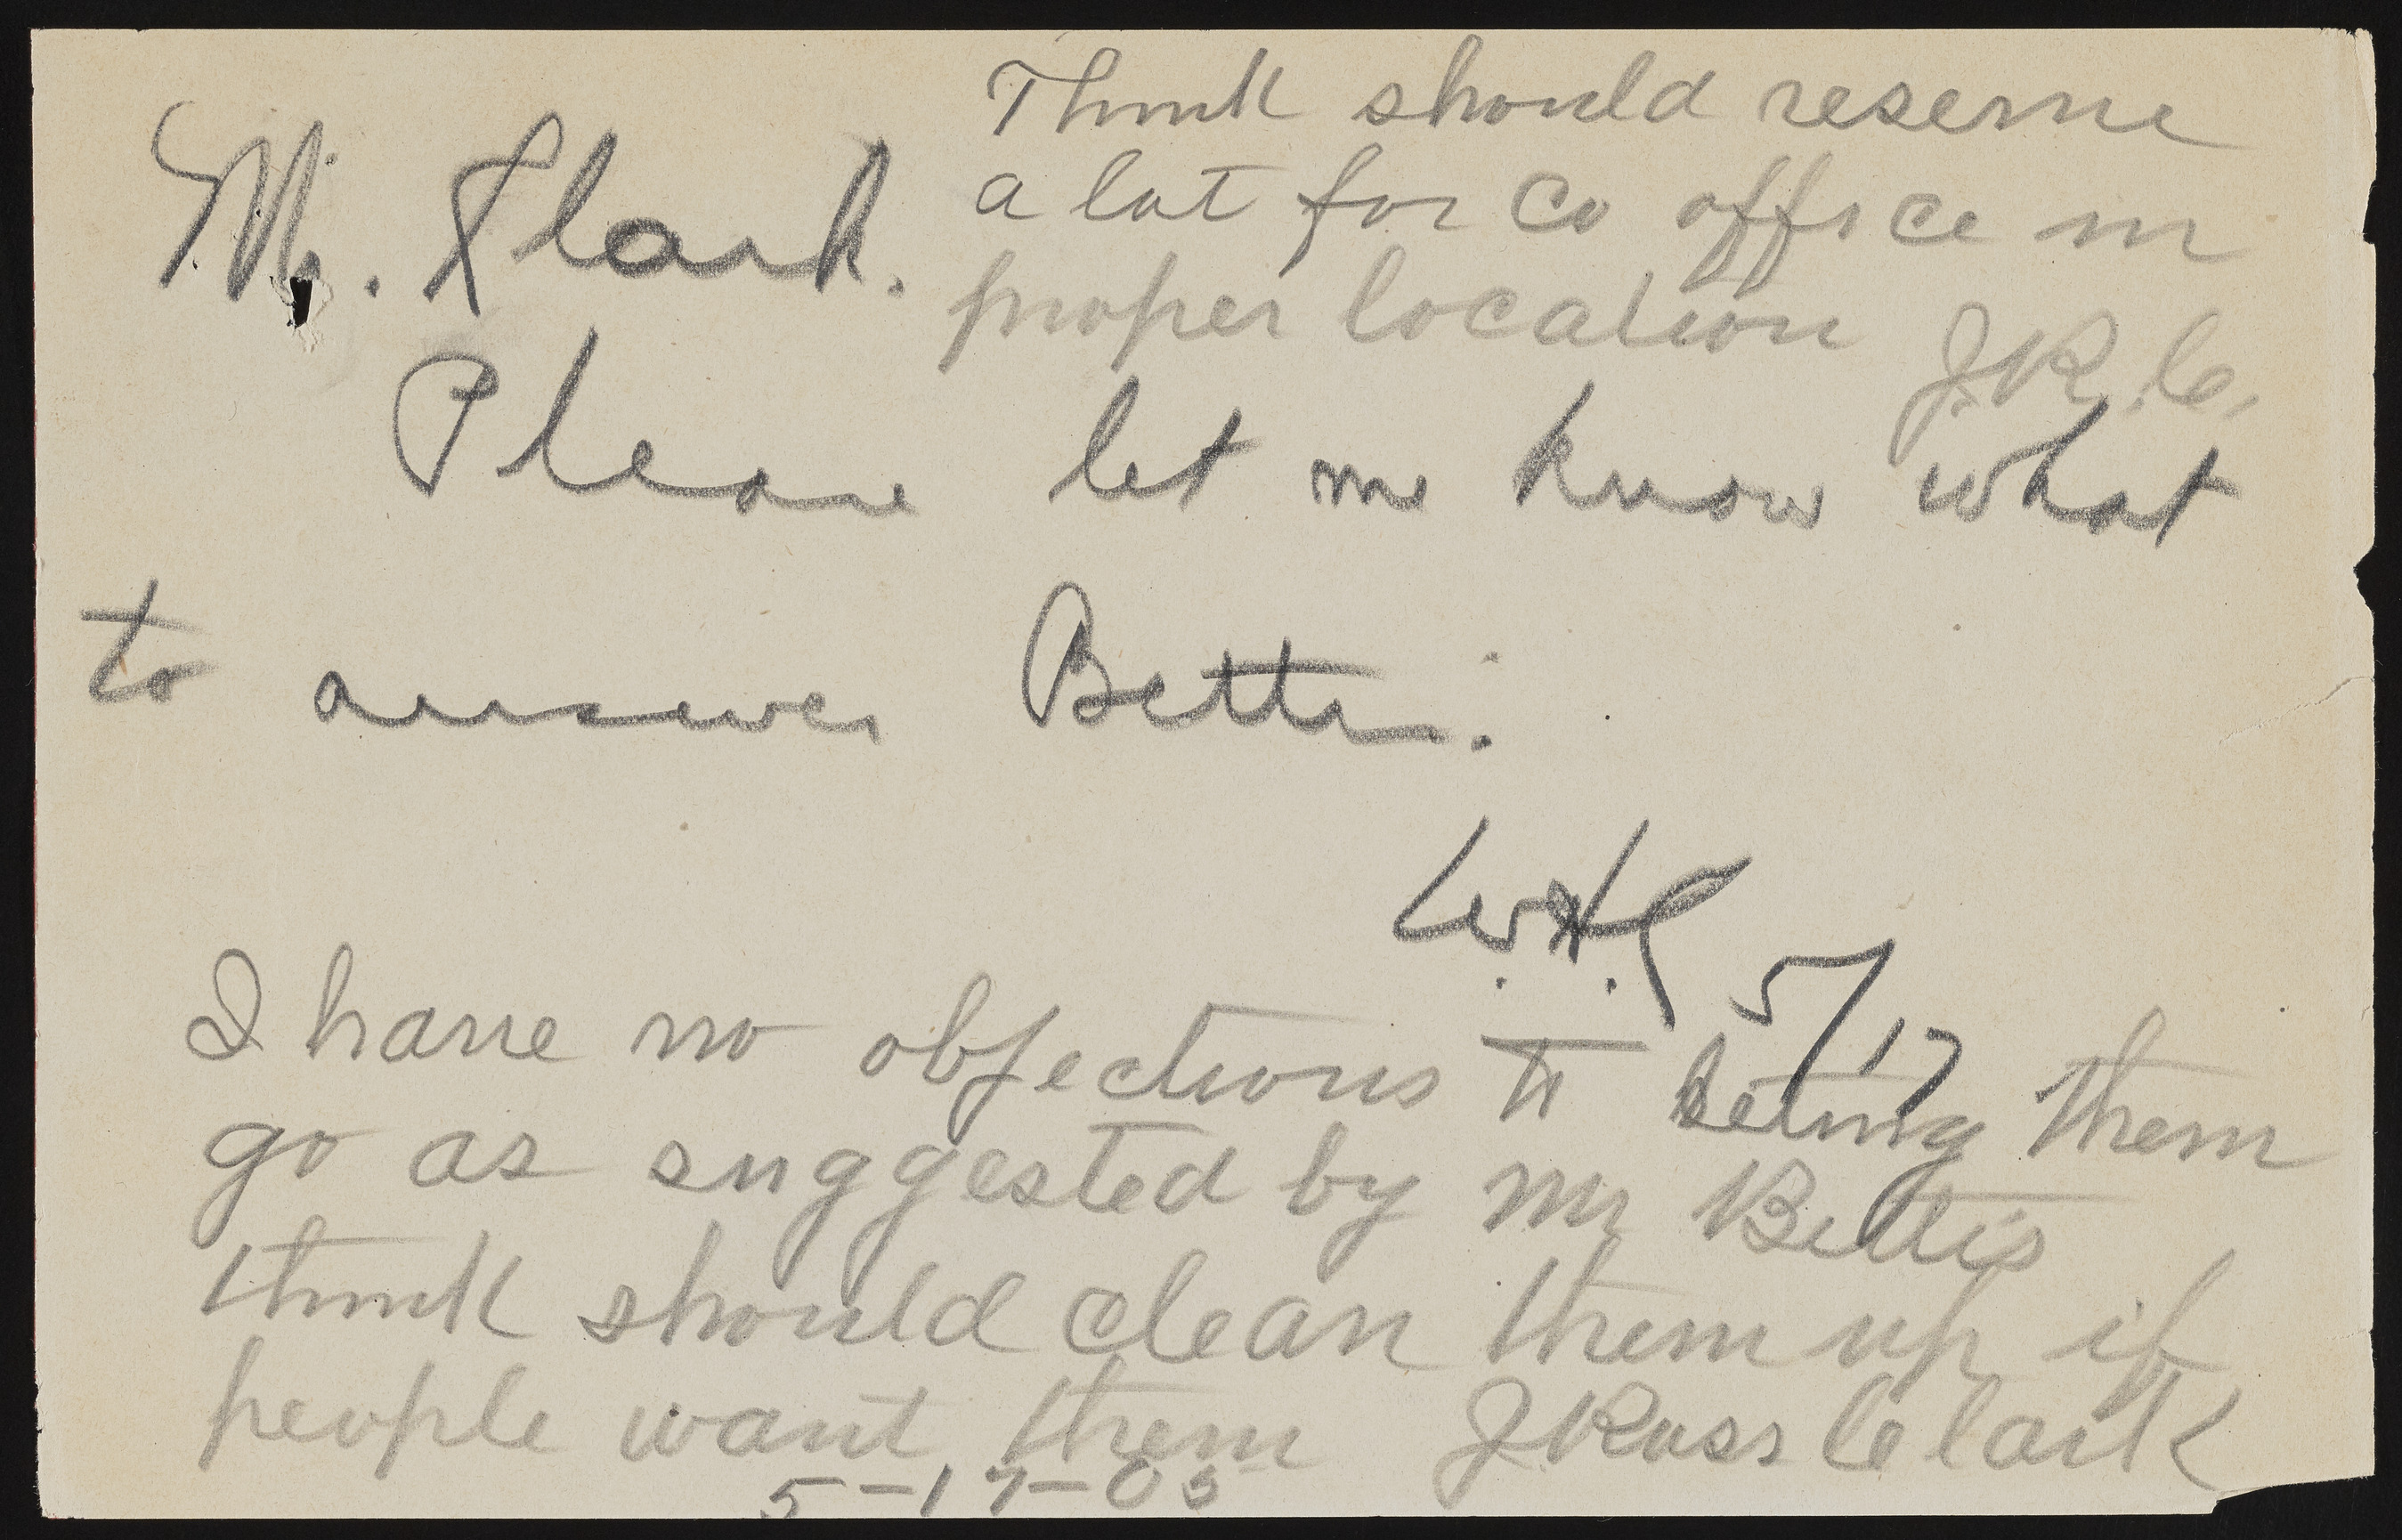 Think should reserve
a lot for Co office in
proper location J.R.C.
Mr. Clark.
Please let me know what
to answer Bettis.
W.H.C 5/17
I have no objections to leting them
go as suggested by Mr Bettis
think should clean them up if
people want them J Ross Clark
5-17-05